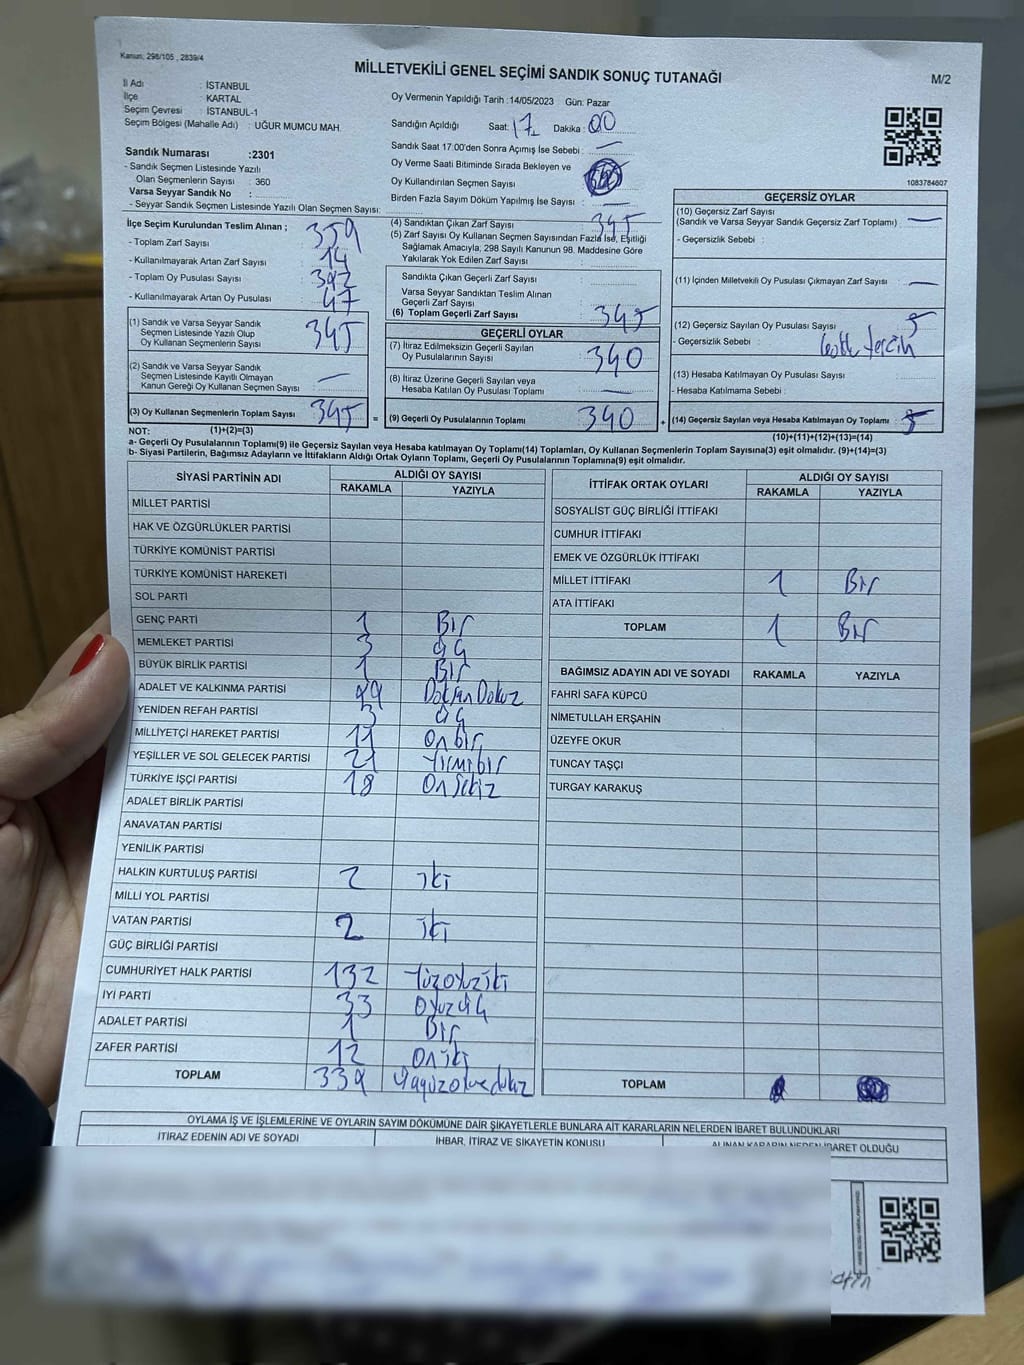 Kanun; 298/105 , 2839/4
MİLLETVEKİLİ GENEL SEÇİMİ SANDIK SONUÇ TUTANAĞI
M/2
İl Adı : İSTANBUL
İlçe : KARTAL
Seçim Çevresi : İSTANBUL-1
Seçim Bölgesi (Mahalle Adı) : UĞUR MUMCU MAH.
Oy Vermenin Yapıldığı Tarih :14/05/2023 Gün: Pazar
Sandığın Açıldığı Saat: 17 Dakika: 00
Sandık Saat 17.00'den Sonra Açımış İse Sebebi : —
Oy Verme Saati Bitiminde Sırada Bekleyen ve
Oy Kullandırılan Seçmen Sayısı
Birden Fazla Sayım Döküm Yapılmış İse Sayısı : —
1083784607
Sandık Numarası :2301
- Sandık Seçmen Listesinde Yazılı
Olan Seçmenlerin Sayısı : 360
Varsa Seyyar Sandık No :
- Seyyar Sandık Seçmen Listesinde Yazılı Olan Seçmen Sayısı:
İlçe Seçim Kurulundan Teslim Alınan ;
- Toplam Zarf Sayısı : 359
- Kullanılmayarak Artan Zarf Sayısı : 14
- Toplam Oy Pusulası Sayısı : 392
- Kullanılmayarak Artan Oy Pusulası : 47
(1) Sandık ve Varsa Seyyar Sandık
Seçmen Listesinde Yazılı Olup
Oy Kullanan Seçmenlerin Sayısı : 345
(2) Sandık ve Varsa Seyyar Sandık
Seçmen Listesinde Kayıtlı Olmayan
Kanun Gereği Oy Kullanan Seçmen Sayısı : —
(3) Oy Kullanan Seçmenlerin Toplam Sayısı : 345 =
(4) Sandıktan Çıkan Zarf Sayısı : 345
(5) Zarf Sayısı Oy Kullanan Seçmen Sayısından Fazla İse, Eşitliği
Sağlamak Amacıyla, 298 Sayılı Kanunun 98. Maddesine Göre
Yakılarak Yok Edilen Zarf Sayısı :
Sandıkta Çıkan Geçerli Zarf Sayısı :
Varsa Seyyar Sandıktan Teslim Alınan
Geçerli Zarf Sayısı :
(6) Toplam Geçerli Zarf Sayısı : 345
GEÇERLİ OYLAR
(7) İtiraz Edilmeksizin Geçerli Sayılan
Oy Pusulalarının Sayısı : 340
(8) İtiraz Üzerine Geçerli Sayılan veya
Hesaba Katılan Oy Pusulası Toplamı : —
(9) Geçerli Oy Pusulalarının Toplamı : 340 +
GEÇERSİZ OYLAR
(10) Geçersiz Zarf Sayısı
(Sandık ve Varsa Seyyar Sandık Geçersiz Zarf Toplamı) : —
- Geçersizlik Sebebi :
(11) İçinden Milletvekili Oy Pusulası Çıkmayan Zarf Sayısı : —
(12) Geçersiz Sayılan Oy Pusulası Sayısı : 5
- Geçersizlik Sebebi : tercih
(13) Hesaba Katılmayan Oy Pusulası Sayısı :
- Hesaba Katılmama Sebebi :
(14) Geçersiz Sayılan veya Hesaba Katılmayan Oy Toplamı : 5
NOT: (1)+(2)=(3)
(10)+(11)+(12)+(13)=(14)
a- Geçerli Oy Pusulalarının Toplamı(9) ile Geçersiz Sayılan veya Hesaba katılmayan Oy Toplamı(14) Toplamları, Oy Kullanan Seçmenlerin Toplam Sayısına(3) eşit olmalıdır. (9)+(14)=(3)
b- Siyasi Partilerin, Bağımsız Adayların ve İttifakların Aldığı Ortak Oyların Toplamı, Geçerli Oy Pusulalarının Toplamına(9) eşit olmalıdır.
SİYASİ PARTİNİN ADI ALDIĞI OY SAYISI
RAKAMLA YAZIYLA
MİLLET PARTİSİ
HAK VE ÖZGÜRLÜKLER PARTİSİ
TÜRKİYE KOMÜNİST PARTİSİ
TÜRKİYE KOMÜNİST HAREKETİ
SOL PARTİ
GENÇ PARTİ 1 Bir
MEMLEKET PARTİSİ 3 üç
BÜYÜK BİRLİK PARTİSİ 1 Bir
ADALET VE KALKINMA PARTİSİ 99 Doksan Dokuz
YENİDEN REFAH PARTİSİ 3 üç
MİLLİYETÇİ HAREKET PARTİSİ 11 On bir
YEŞİLLER VE SOL GELECEK PARTİSİ 21 Yirmi bir
TÜRKİYE İŞÇİ PARTİSİ 18 On sekiz
ADALET BİRLİK PARTİSİ
ANAVATAN PARTİSİ
YENİLİK PARTİSİ
HALKIN KURTULUŞ PARTİSİ 2 iki
MİLLİ YOL PARTİSİ
VATAN PARTİSİ 2 iki
GÜÇ BİRLİĞİ PARTİSİ
CUMHURİYET HALK PARTİSİ 132 Yüzotuziki
İYİ PARTİ 33 Otuzüç
ADALET PARTİSİ 1 Bir
ZAFER PARTİSİ 12 On iki
TOPLAM 339
İTTİFAK ORTAK OYLARI ALDIĞI OY SAYISI
RAKAMLA YAZIYLA
SOSYALİST GÜÇ BİRLİĞİ İTTİFAKI
CUMHUR İTTİFAKI
EMEK VE ÖZGÜRLÜK İTTİFAKI
MİLLET İTTİFAKI 1 Bir
ATA İTTİFAKI
TOPLAM 1 Bir
BAĞIMSIZ ADAYIN ADI VE SOYADI RAKAMLA YAZIYLA
FAHRİ SAFA KÜPCÜ
NİMETULLAH ERŞAHİN
ÜZEYFE OKUR
TUNCAY TAŞÇI
TURGAY KARAKUŞ
TOPLAM
OYLAMA İŞ VE İŞLEMLERİNE VE OYLARIN SAYIM DÖKÜMÜNE DAİR ŞİKAYETLERLE BUNLARA AİT KARARLARIN NELERDEN İBARET BULUNDUKLARI
İTİRAZ EDENİN ADI VE SOYADI İHBAR, İTİRAZ VE ŞİKAYETİN KONUSU ALINAN KARARIN NEDEN İBARET OLDUĞU